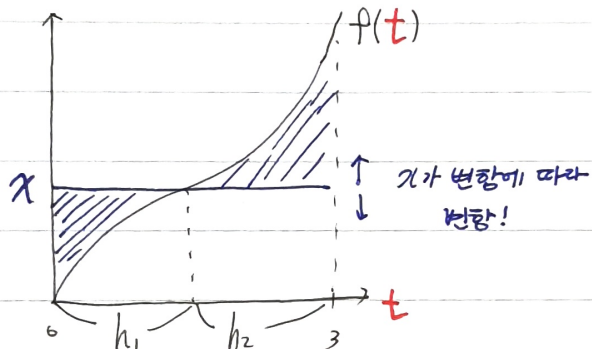 f(t)
x
x가 변함에 따라
변함!
t
0
h₁
h₂
3